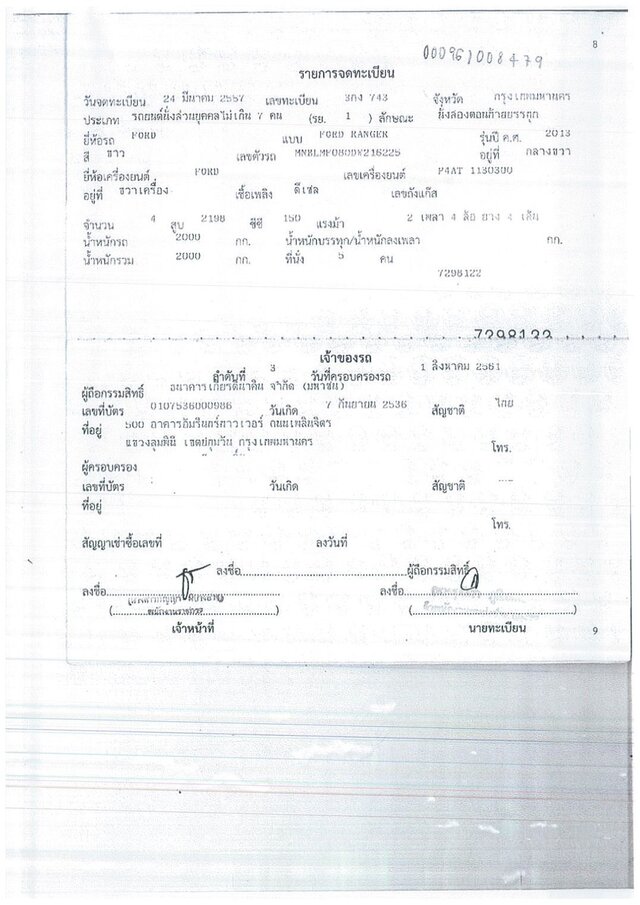 8
000961008479
รายการจดทะเบียน
วันจดทะเบียน 24 มีนาคม 2557 เลขทะเบียน 3กง 743 จังหวัด กรุงเทพมหานคร
ประเภท รถยนต์นั่งส่วนบุคคลไม่เกิน 7 คน (รย. 1 ) ลักษณะ นั่งสองตอนท้ายบรรทุก
ยี่ห้อรถ FORD แบบ FORD RANGER รุ่นปี ค.ศ. 2013
สี ขาว เลขตัวรถ MNBLMF080DW216225 อยู่ที่ กลางขวา
ยี่ห้อเครื่องยนต์ FORD เลขเครื่องยนต์ P4AT 1130300
อยู่ที่ ขวาเครื่อง เชื้อเพลิง ดีเซล เลขถังแก๊ส
จำนวน 4 สูบ 2198 ซีซี 150 แรงม้า 2 เพลา 4 ล้อ ยาง 4 เส้น
น้ำหนักรถ 2000 กก. น้ำหนักบรรทุก/น้ำหนักลงเพลา กก.
น้ำหนักรวม 2000 กก. ที่นั่ง 5 คน
7298122
7298122
เจ้าของรถ
ลำดับที่ 3 วันที่ครอบครองรถ 1 สิงหาคม 2561
ผู้ถือกรรมสิทธิ์ ธนาคารเกียรตินาคิน จำกัด (มหาชน)
เลขที่บัตร 0107536000986 วันเกิด 7 กันยายน 2536 สัญชาติ ไทย
ที่อยู่ 500 อาคารอัมรินทร์ทาวเวอร์ ถนนเพลินจิตร
แขวงลุมพินี เขตปทุมวัน กรุงเทพมหานคร
โทร.
ผู้ครอบครอง
เลขที่บัตร วันเกิด สัญชาติ ----
ที่อยู่
โทร.
สัญญาเช่าซื้อเลขที่ ลงวันที่
ลงชื่อ ผู้ถือกรรมสิทธิ์
ลงชื่อ ลงชื่อ
( ) ( )
เจ้าหน้าที่ นายทะเบียน
9